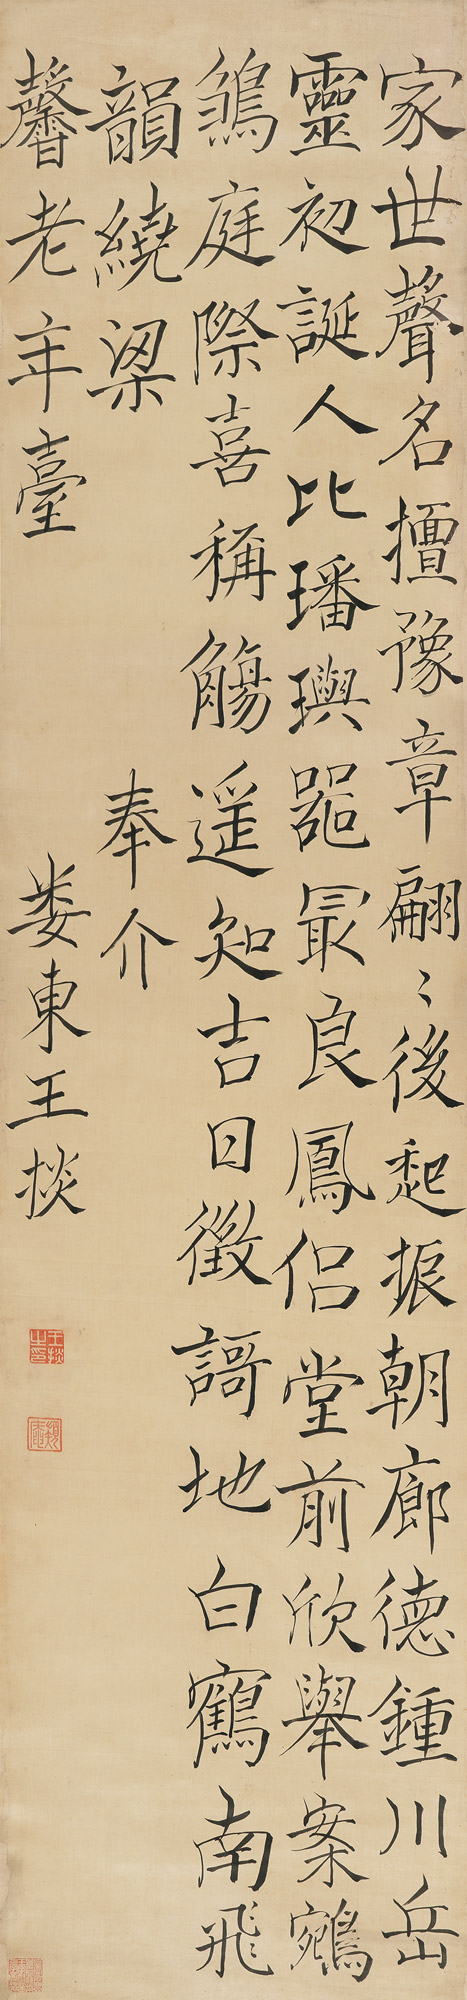 家世聲名擅豫章翩〻後起振朝廊德鍾川岳
靈初誕人比璠璵噐最良鳳侶堂前欣舉案鵷
鶵庭際喜稱觴遥知吉日徵謌地白鶴南飛
韻繞梁 奉介
馨老年臺 婁東王掞
王掞之印
顓庵